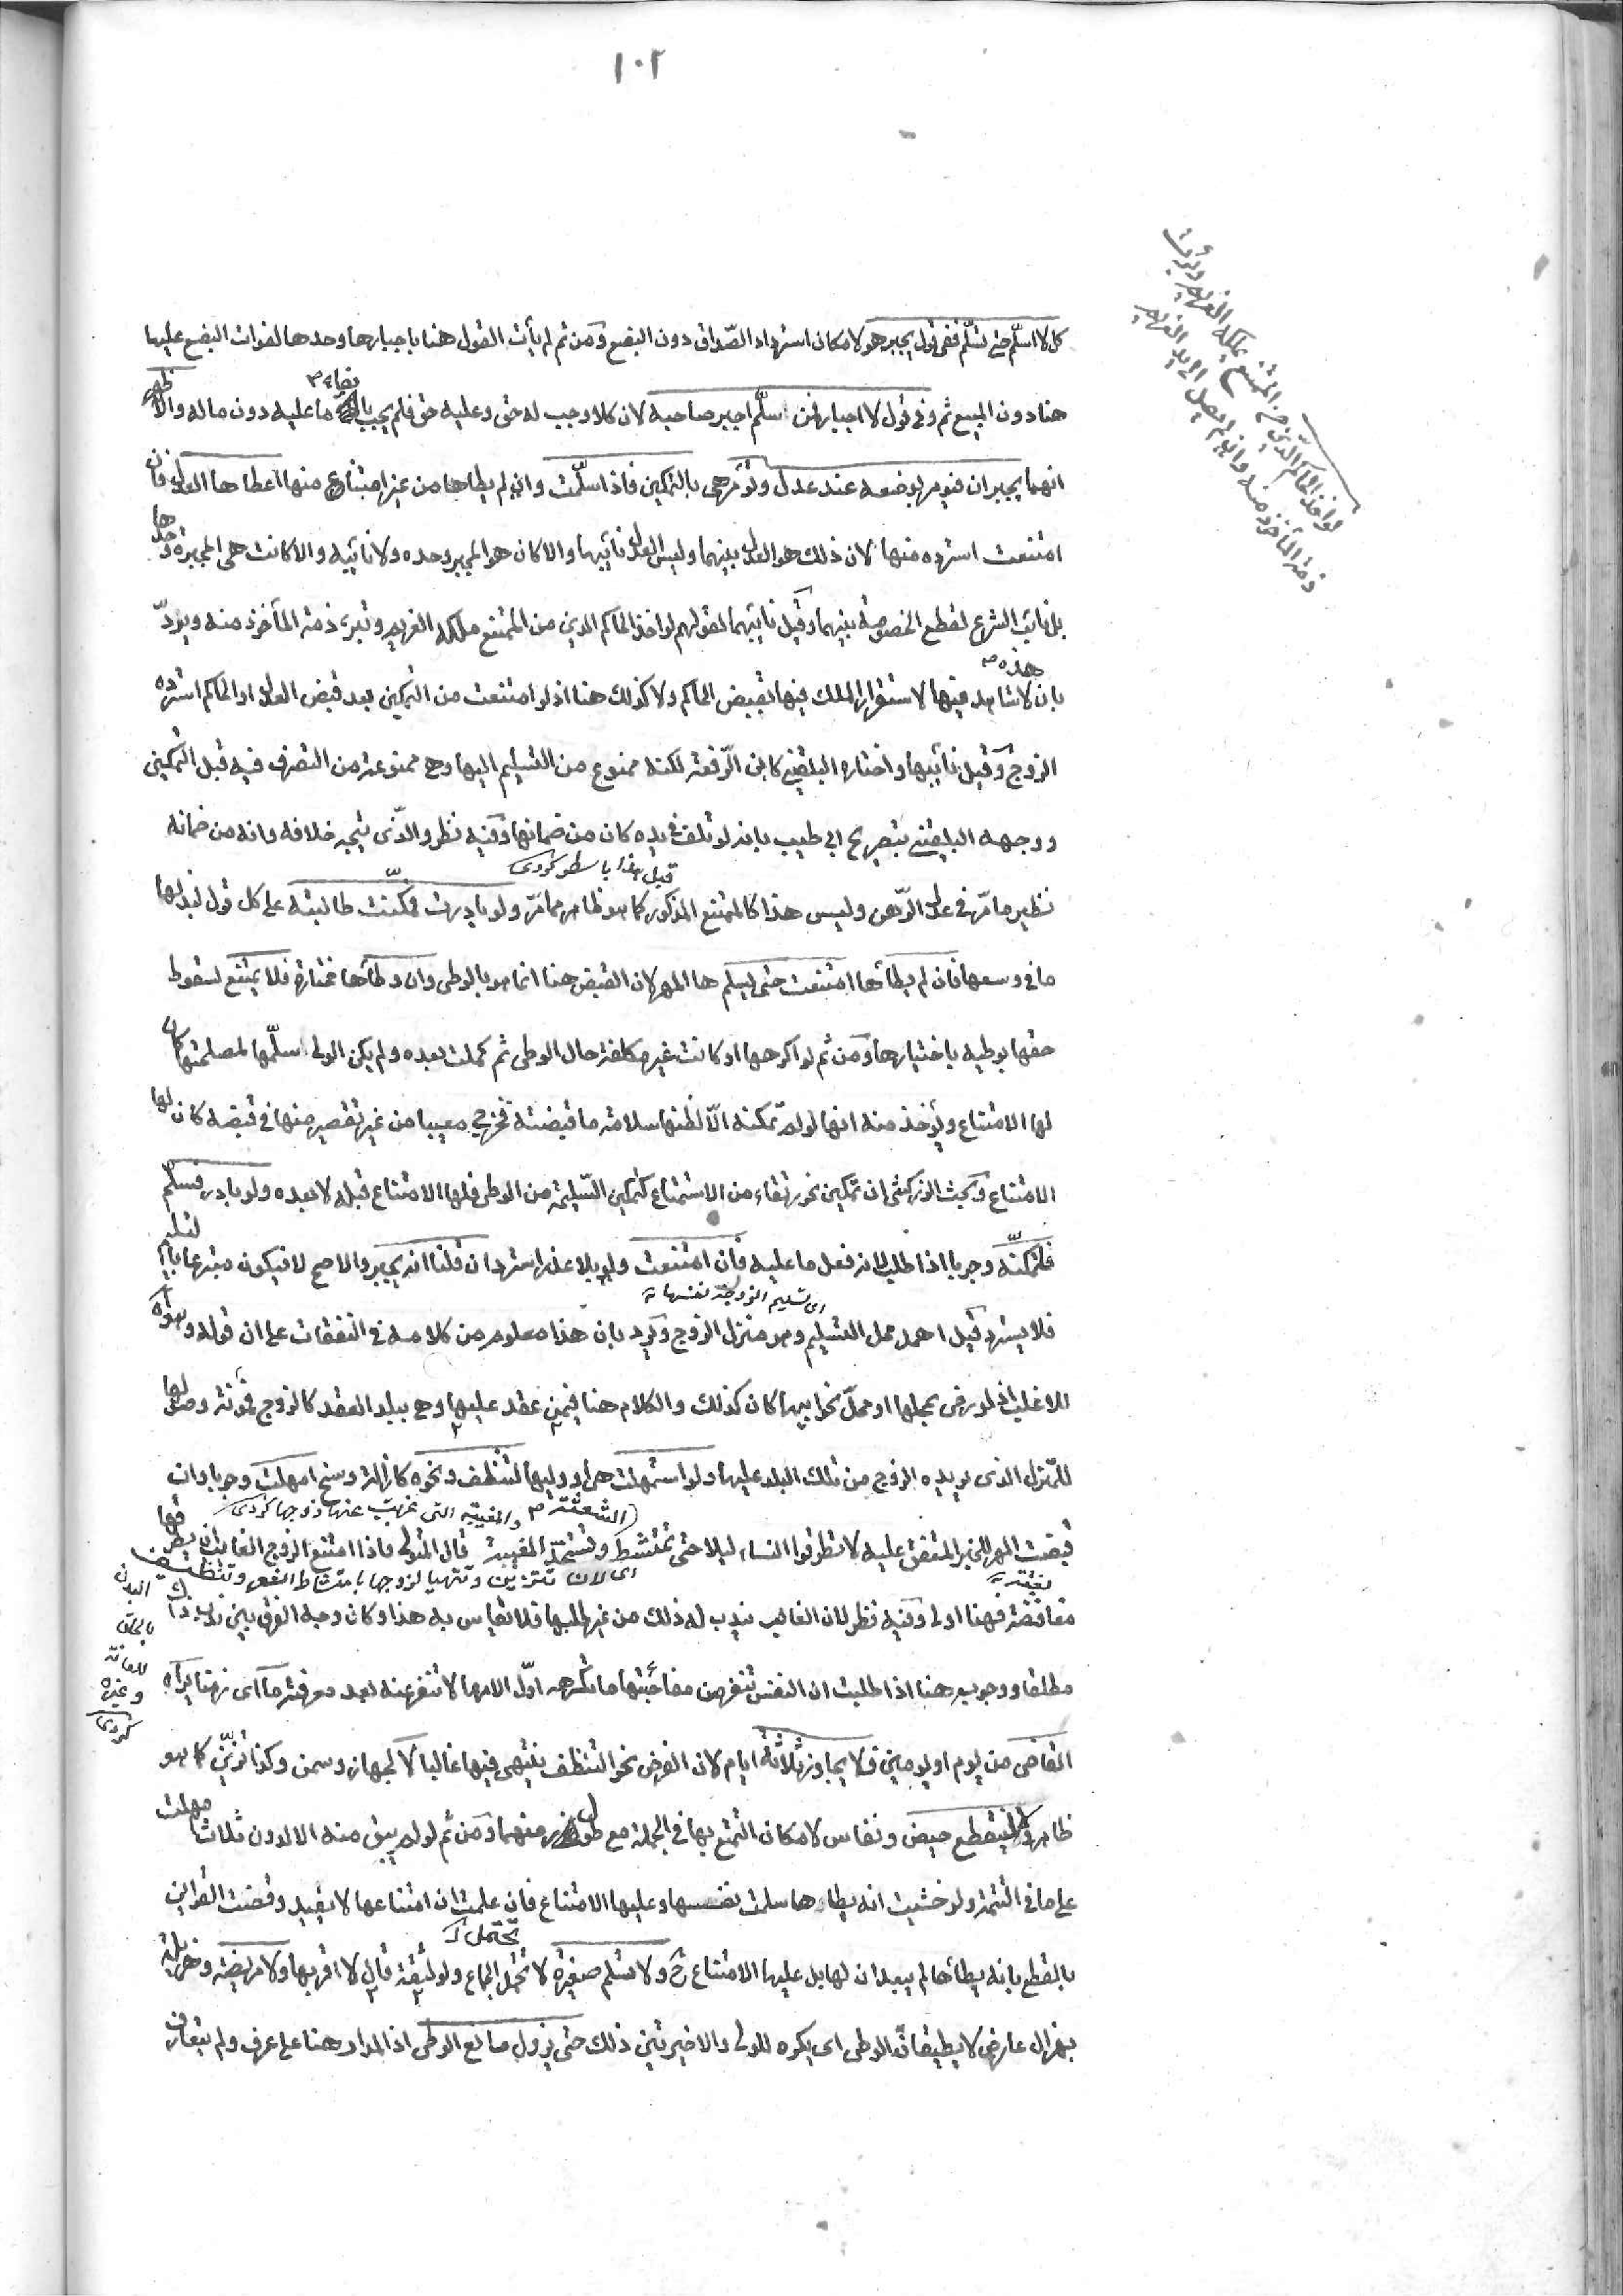 ١٠٢
كل لا اسلّم حتى تسلّم ففى قول يجبر هو لامكان استرداد الصّداق دون البضع ومن ثم لم يأت القول هنا باجبارها وحدها لفوات البضع عليها
هنا دون المبيع ثم وفى قول لا اجبار فمن اسلّم اجبر صاحبه لان كلا وجب له حق وعليه حق فلم يجبر بايفاء ما عليه دون ماله والاظهر
انهما يجبران فيؤمر بوضعه عند عدل وتؤمر هى بالتمكين فاذا سلّمت وان لم يطأها من غير امتناع منها اعطاها العدل فان
امتنعت استرده منها لان ذلك هو العدل بينهما وليس العدل نائبهما والا كان هو المجبر وحده ولا نائبه والا كانت هى المجبرة وحدها
بل نائب الشرع لقطع الخصومة بينهما وقيل نائبهما لقولهم لو اخذ الحاكم الدين من الممتنع ملكه الغريم وتبرء ذمة المأخوذ منه ويردّ
هذه
بان لا شاهد فيها لاستقرار الملك فيها بقبض الحاكم ولا كذلك هنا اذ لو امتنعت من التمكين بعد قبض العدل او الحاكم استرده
الزوج وقيل نائبها واختاره البلقينى كابن الرّفعة لكنه ممنوع من التسليم اليها وهى ممنوعة من التصرف فيه قبل التمكين
ووجهه البلقينى بتصريح ابى طيب بانه لو تلف فى يده كان من ضمانها وفيه نظر والذّى يتجه خلافه وانه من ضمانه
قبل هذا باسطر كردى
نظير ما مرّ فى عدل الرّهن وليس هذا كالممتنع المذكور كما هو ظاهر مما مرّ ولو بادرت فمكّنت طالبته على كل قول لبذلها
ما فى وسعها فان لم يطأها امتنعت حتى يسلم ها المهر لان القبض هنا انما هو بالوطى وان وطأها مختارة فلا يمتنع لسقوط
حقها بوطيه باختيارها ومن ثم لو اكرهها او كانت غير مكلفة حال الوطى ثم كملت بعده ولم يكن الولى سلّمها لمصلحتها كان
لها الامتناع ويؤخذ منه انها لو لم تمكنه الّا لظنها سلامة ما قبضته فخرج معيبا من غير تقصير منها فى قبضه كان لها
الامتناع وبحث الزركشى ان تمكين نحو رتقاء من الاستمتاع كتمكين السّليمة من الوطى فلها الامتناع قبله لا بعده ولو بادر فسلّم
فلتمكنّه وجوبا اذا طلب لانه فعل ما عليه فان امتنعت ولو بلا عذر استرد ان قلنا انه يجبر والاصح لا فيكون متبرعا بالتسليم
اى تسليم الزوجة نفسها
فلا يسترد قيل اهمل محل التسليم وهو منزل الزوج ويرد بان هذا معلوم من كلامه فى النفقات على ان قوله وسواه
للاغلب اذ لو رضى بمحلها او محلّ نحو ابيها كان كذلك والكلام هنا فيمن عقد عليها وهى ببلد العقد كالزوج فمؤنة وصولها
للمنزل الذى يريده الزوج من تلك البلد عليها ولو استمهلت هى او وليها لتنظف ونحوه كازالة وسخ امهلت وجوبا وان
الشعثة والمغيبة التى غيب عنها زوجها كردى
قبضت المهر للخبر المتفق عليه لا تطرقوا النساء ليلا حتى تمتشط وتستحدّ المغيبة قال المتولى فاذا امتنع الزوج الغائب ان يطرقها
اى لان تتزين وتتهيأ لزوجها بامتشاط الشعر وتنظيف البدن بالحلق للعانة وغيره كردى
مغافصة فهنا اولى وفيه نظر لان الغائب يندب له ذلك من غير طلبها فلا يقاس به هذا وكان وجه الفرق بين ندب ذاك
بغتة
مطلقا ووجوب هنا اذا طلبت ان النفس تنفر من مفاجئتها ما تكرهه اوّل الامر ما لا تنفر عنه بعد معرفته ما اى زمنا يراه
القاضى من يوم او يومين ولا يجاوز ثلاثة ايام لان الغرض نحو التنظف ينتهى فيها غالبا لا لجهاز وسمن وكذا تزيّن كما هو
ظاهر ولا لينقطع حيض ونفاس لامكان التمتع بها فى الجملة مع طول زمنهما ومن ثم لو لم يبق منه الا لدون ثلاث امهلت
على ما فى التتمة ولو خشيت انه يطاءها سلمت نفسها وعليها الامتناع فان علمت ان امتناعها لا يفيد وقضت القراين
تحتمل
بالقطع بانه يطأها لم يبعد ان لها بل عليها الامتناع ح ولا تسلم صغيرة لا تحمل الجماع ولو لثقة قال لا اقربها ولا مريضة وهزيلة
بهزال عارض لا يطيقان الوطى اى يكره للولى والاخيرتين ذلك حتى يزول مانع الوطى اذ المدار هنا على عرف ولم يتعارف
لو اخذ الحاكم الدّين من الممتنع يملكه الغريم وبرأت
ذمة المأخوذ منه وان لم يصل الى يد الغريم